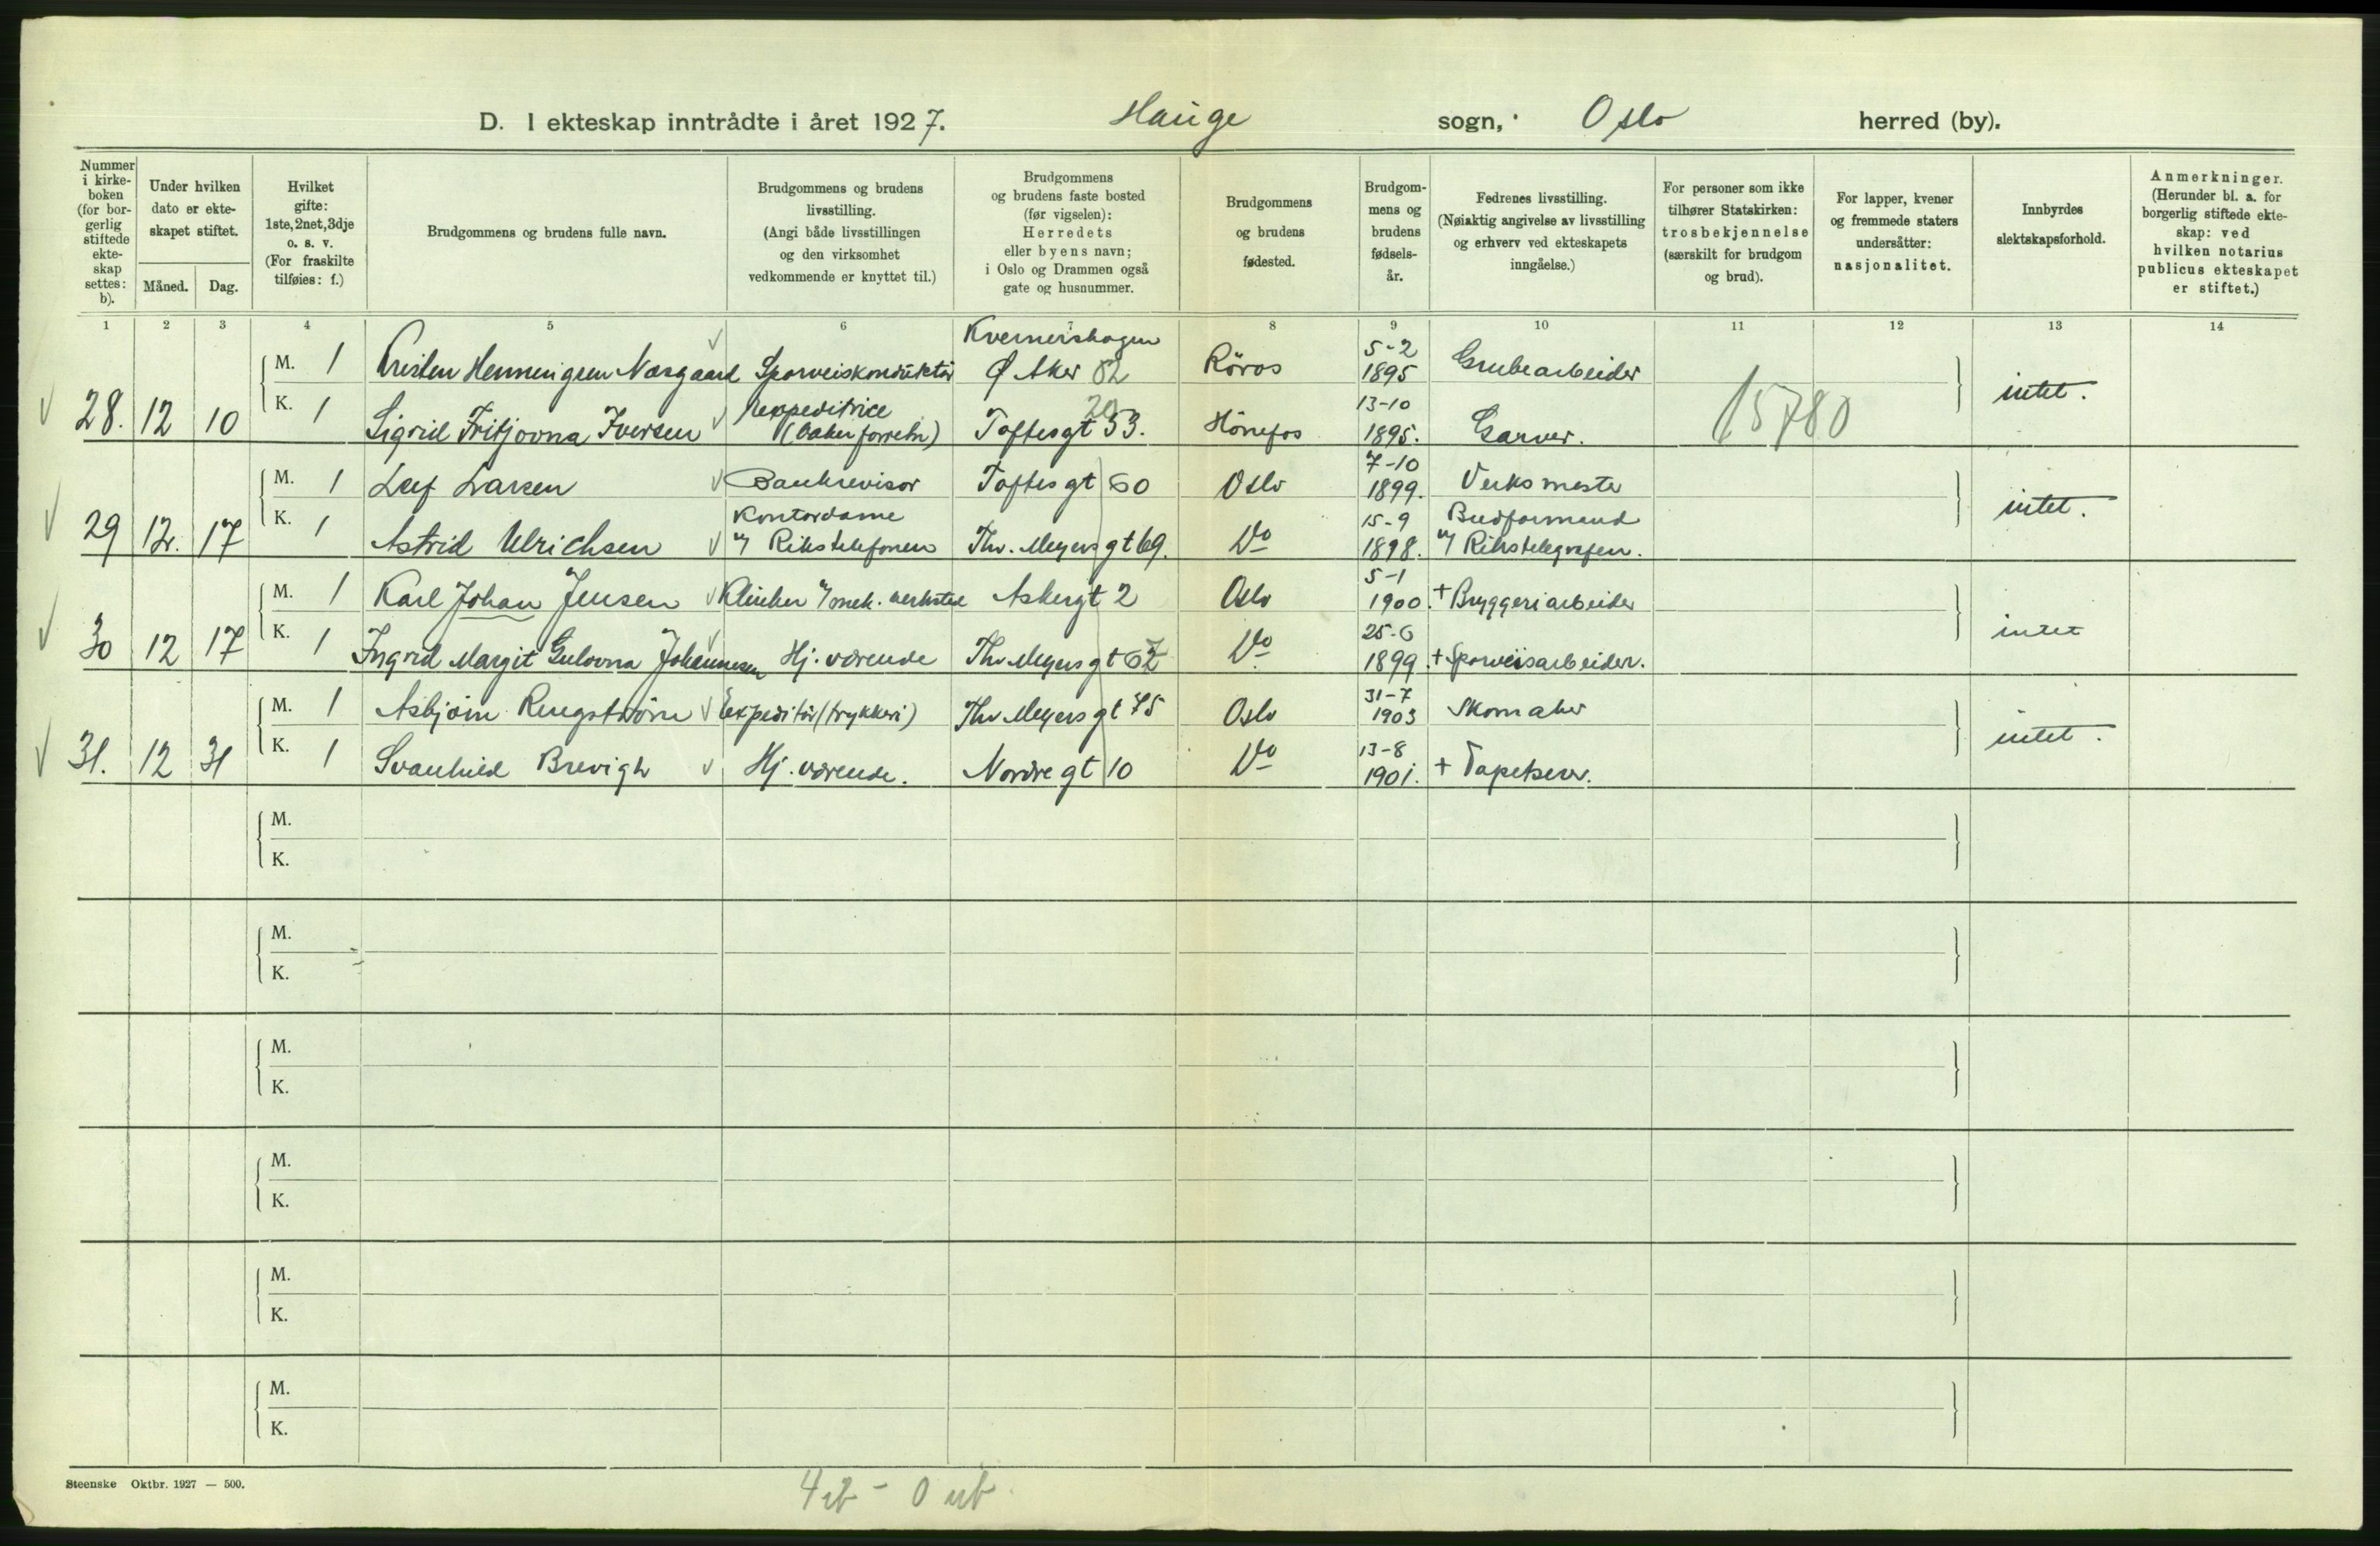 D. I ekteskap inntrådte i året 1927. Hauge sogn, Oslo herred (by).
Nummer i kirkeboken (for borgerlig stiftede ekteskap settes: b).
Under hvilken dato er ekteskapet stiftet.
Måned. Dag.
Hvilket gifte: 1ste, 2net, 3dje o. s. v. (For fraskilte tilføies: f.)
Brudgommens og brudens fulle navn.
Brudgommens og brudens livsstilling. (Angi både livsstillingen og den virksomhet vedkommende er knyttet til.)
Brudgommens og brudens faste bosted (før vigselen): Herredets eller byens navn; i Oslo og Drammen også gate og husnummer.
Brudgommens og brudens fødested.
Brudgommens og brudens fødselsår.
Fedrenes livsstilling. (Nøiaktig angivelse av livsstilling og erhverv ved ekteskapets inngåelse.)
For personer som ikke tilhører Statskirken: trosbekjennelse (særskilt for brudgom og brud).
For lapper, kvener og fremmede staters undersåtter: nasjonalitet.
Innbyrdes slektskapsforhold.
Anmerkninger. (Herunder bl. a. for borgerlig stiftede ekteskap: ved hvilken notarius publicus ekteskapet er stiftet.)
1 2 3 4 5 6 7 8 9 10 11 12 13 14
Kvernershagen 5-2
M. 1 Henningsen Næsgaard Sporveiskonduktør Ø Aker 82 Röros 1895 Grubearbeider
expeditrice 20 13-10
28. 12 10 K. 1 Sigrid Fritjovna Iversen (baker forretn) Toftesgt 53. Hönefos 1895. Garver. 15780 intet.
7-10
M. 1 Leif Larsen Bankrevisor Toftesgt 60 Oslo 1899. Verksmester
Kontordame 15-9 Budformand
29 12. 17 K. 1 Astrid Ulrichsen v/ Rikstelefonen Thv. Meyers gt 69. Do 1898. v/ Rikstelegrafen. intet.
5-1
M. 1 Karl Johan Jensen Klinker v/ mek. verksted Askergt 2 Oslo 1900. + Bryggeriarbeider
25-6
30 12 17 K. 1 Ingrid Margit Gulovna Johannesen Hj. værende Thv Meyers gt 62 Do 1899. + Sporveisarbeider. intet
31-7
M. 1 Asbjørn Ringstrøm Expeditör (trykkeri) Thv Meyers gt 75 Oslo 1903 Skomaker
13-8
31. 12 31 K. 1 Svanhild Brevigh Hj. værende. Nordre gt 10 Do 1901. + Tapetserer. intet.
M.
K.
M.
K.
M.
K.
M.
K.
M.
K.
M.
K.
Steenske Oktbr. 1927 — 500.
4 ib - 0 ub